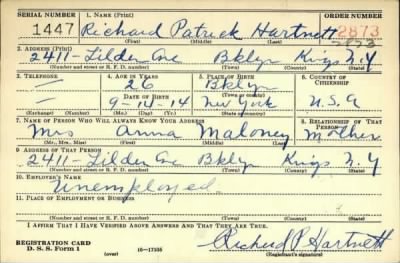 SERIAL NUMBER 1. NAME (Print) ORDER NUMBER
1447 Richard Patrick Hartnett 2873
(First) (Middle) (Last)
2. ADDRESS (Print)
2411 - Tilden Ave Bklyn Kings N.Y
(Number and street or R. F. D. number) (Town) (County) (State)
3. TELEPHONE 4. AGE IN YEARS 5. PLACE OF BIRTH 6. COUNTRY OF CITIZENSHIP
— 26 Bklyn
DATE OF BIRTH (Town or county)
— 9-14-14 New York U.S.A
(Exchange) (Number) (Mo.) (Day) (Yr.) (State or country)
7. NAME OF PERSON WHO WILL ALWAYS KNOW YOUR ADDRESS 8. RELATIONSHIP OF THAT PERSON
Mrs Anna Maloney Mother
(Mr., Mrs., Miss) (First) (Middle) (Last)
9. ADDRESS OF THAT PERSON
2411 - Tilden Ave Bklyn Kings N.Y
(Number and street or R. F. D. number) (Town) (County) (State)
10. EMPLOYER'S NAME
Unemployed
11. PLACE OF EMPLOYMENT OR BUSINESS
(Number and street or R. F. D. number) (Town) (County) (State)
I AFFIRM THAT I HAVE VERIFIED ABOVE ANSWERS AND THAT THEY ARE TRUE.
REGISTRATION CARD
D. S. S. Form 1 (over) 16—17105 Richard P Hartnett
(Registrant's signature)